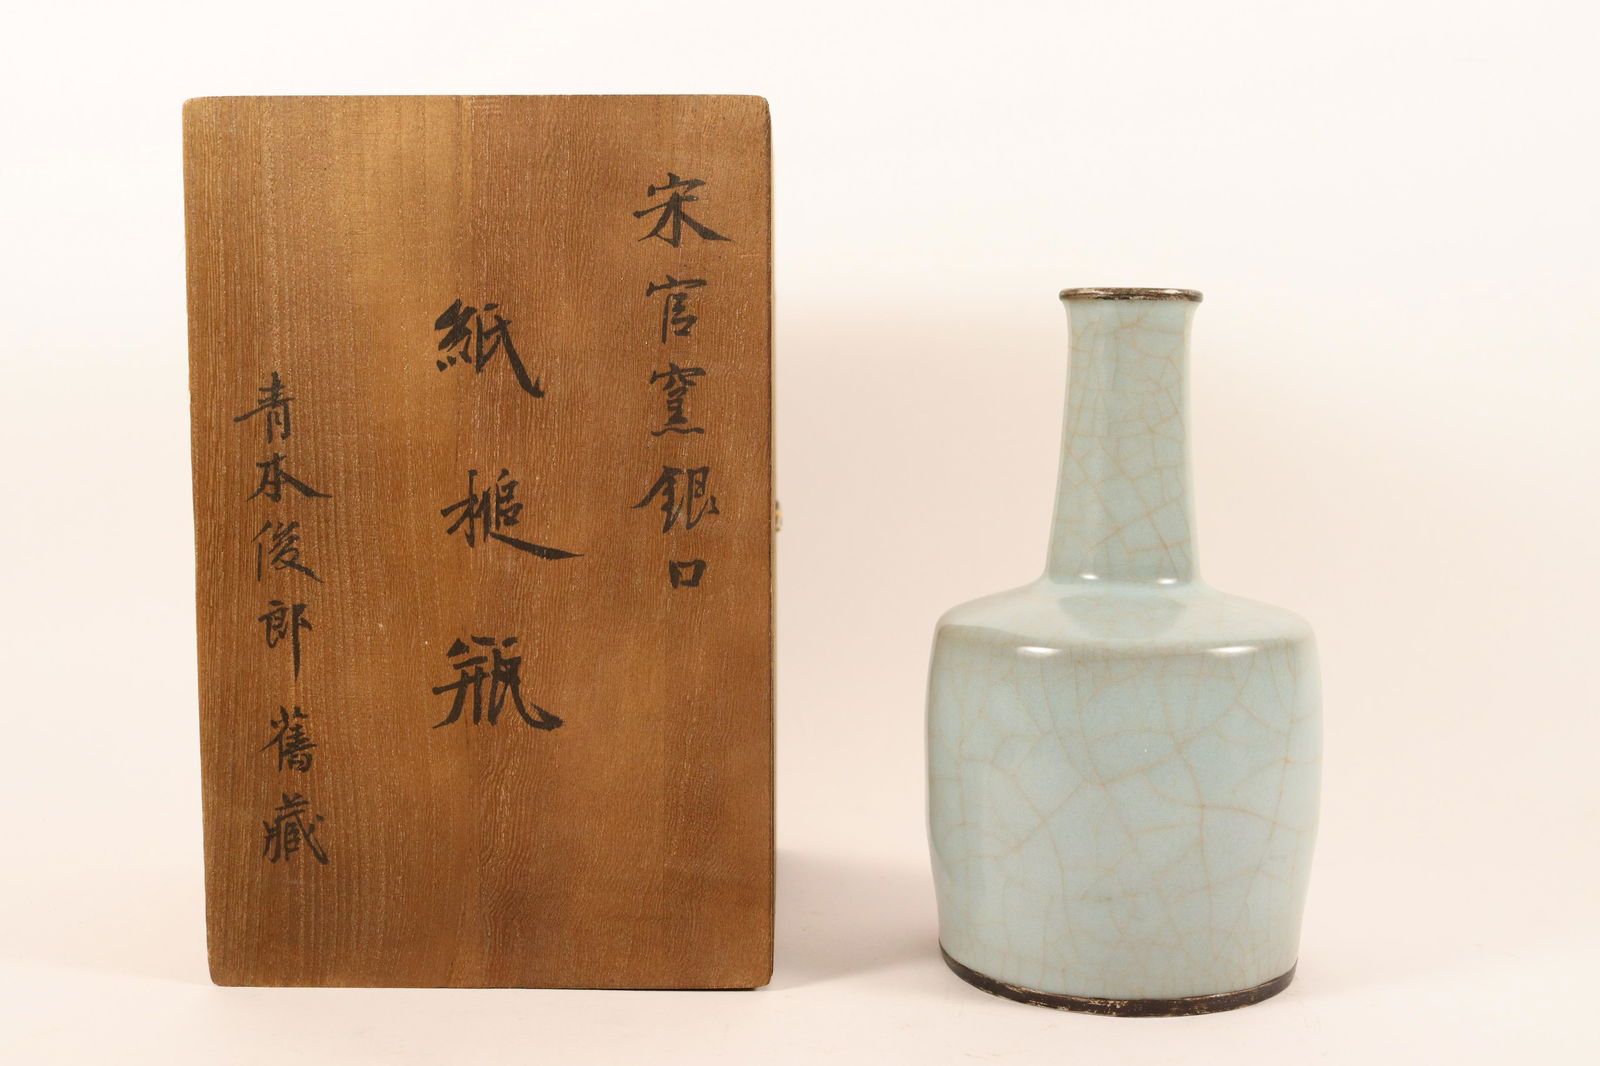 宋官窯銀口
紙槌瓶
青木俊郎舊藏